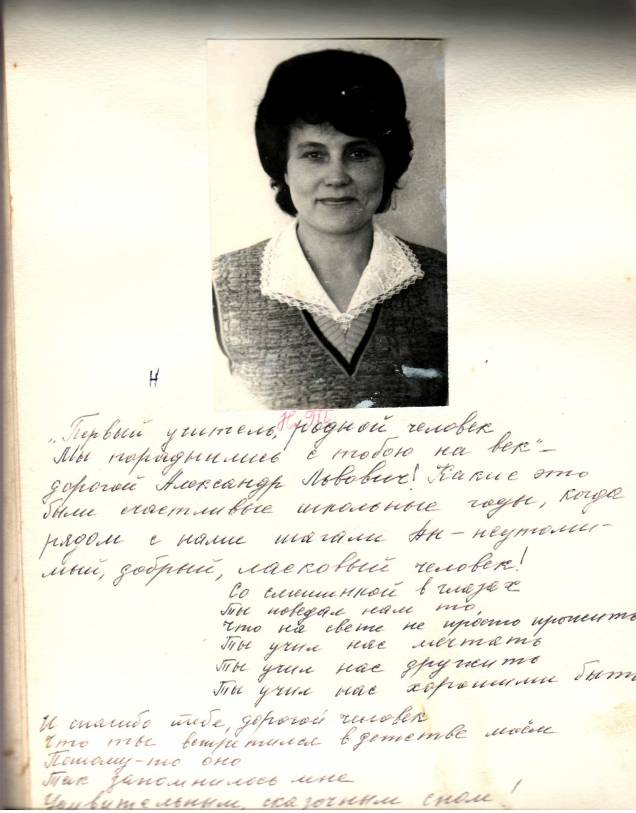 Н
Н. Т.
„Первый учитель, родной человек
Мы породнились с тобою на век" –
дорогой Александр Львович! Какие это
были счастливые школьные годы, когда
рядом с нами шагали Вы – неутоми-
мый, добрый, ласковый человек!
Со смешинкой в глазах
Ты поведал нам то,
Что на свете не просто прожить
Ты учил нас мечтать
Ты учил нас дружить
Ты учил нас хорошими быть
И спасибо тебе, дорогой человек
Что ты встретился в детстве моём
Потому-то оно
Так запомнилось мне
Удивительным, сказочным сном!